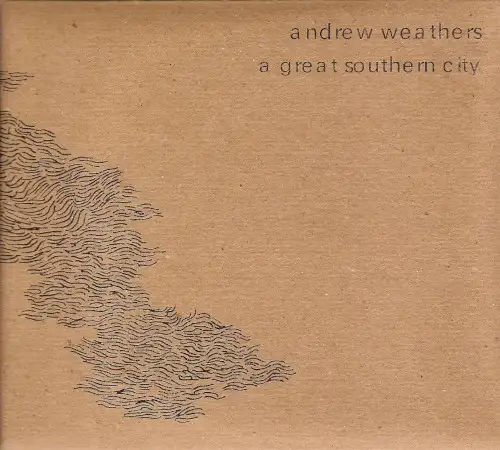 andrew weathers
a great southern city